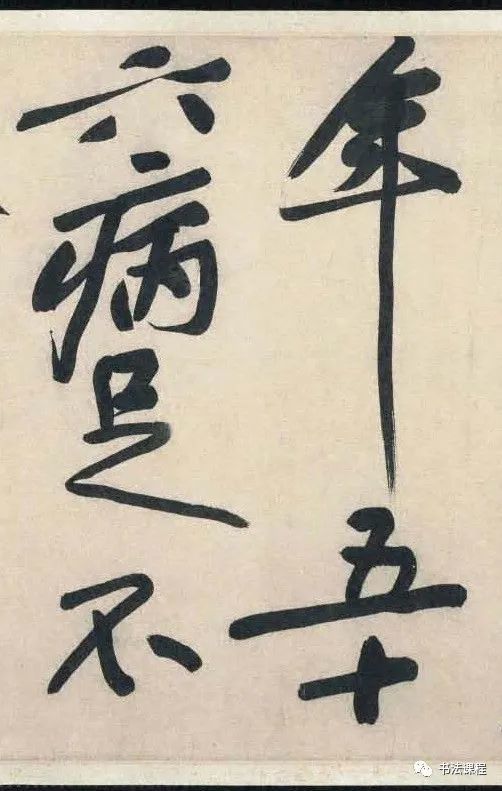 年五十
六病足不
书法课程